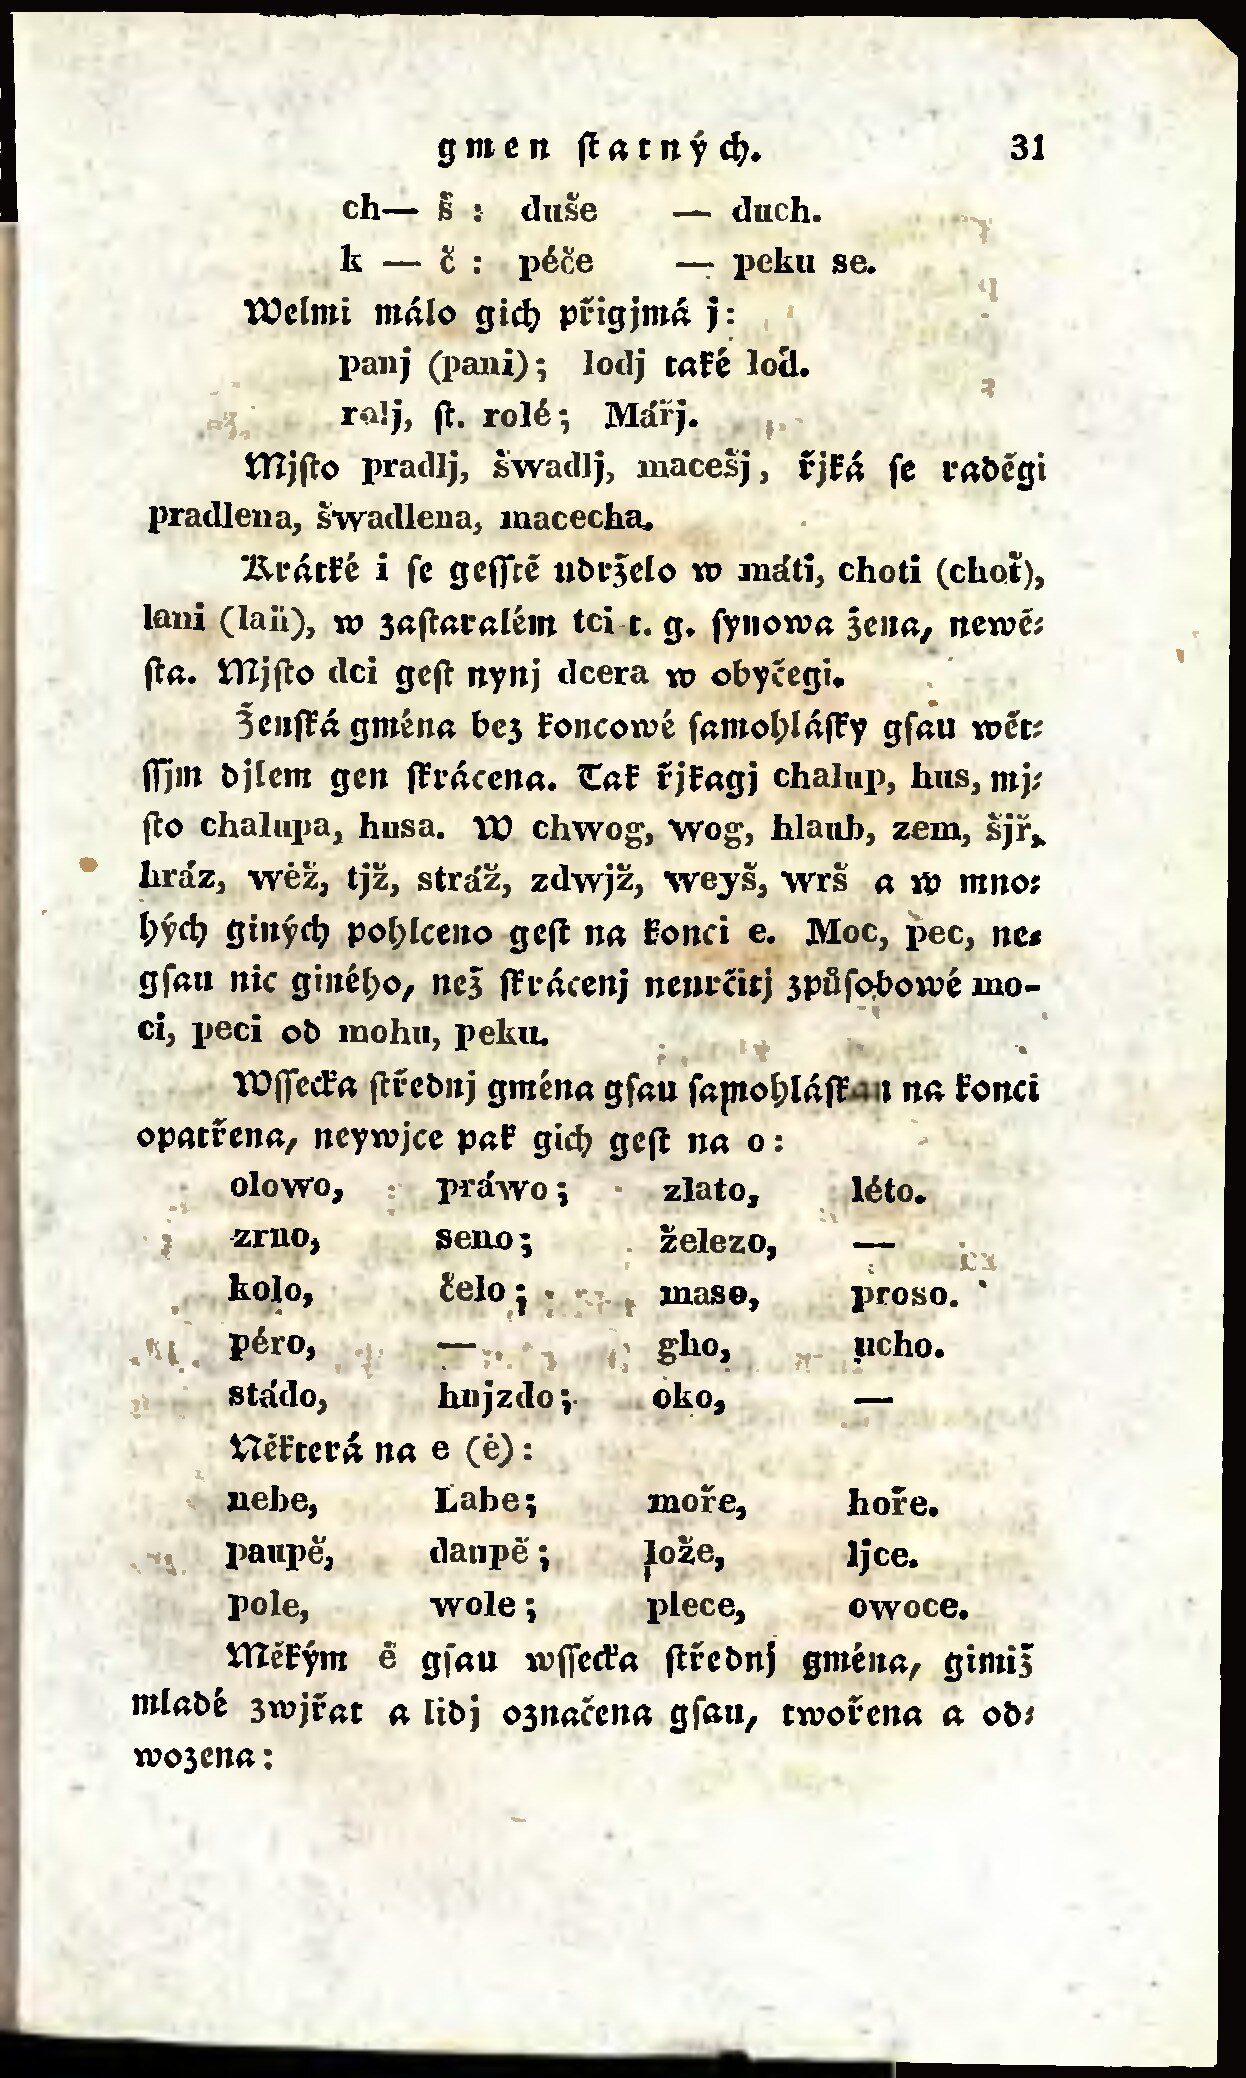 gmen ſtatných. 31
ch— š : duše — duch.
k — č : péče — peku se.
Welmi málo gich přigjmá j:
panj (pani); lodj také loď.
ralj, ſt. rolé; Mářj.
Mjſto pradlj, šwadlj, macešj, řjká ſe raděgi
pradlena, šwadlena, macecha.
Krátké i ſe geſſtě udrželo w máti, choti (choť),
lani (laň), w zaſtaralém tci t. g. ſynowa žena, newě-
ſta. Mjſto dci geſt nynj dcera w obyčegi.
Ženſká gména bez koncowé ſamohláſky gſau wět-
ſſjm djlem gen ſkrácena. Tak řjkagj chalup, hus, mj-
ſto chalupa, husa. W chwog, wog, hlaub, zem, šjř,
hráz, wěž, tjž, stráž, zdwjž, weyš, wrš a w mno-
hých giných pohlceno geſt na konci e. Moc, pec, ne-
gſau nic giného, než ſkrácenj neurčitj způſobowé mo-
ci, peci od mohu, peku.
Wſſecka ſtřednj gména gſau ſamohláſkau na konci
opatřena, neywjce pak gich geſt na o:
olowo, práwo; zlato, léto.
zrno, seno; železo, —
kolo, čelo; maso, proso.
péro, — gho, ucho.
stádo, hnjzdo; oko, —
Některá na e (ě):
nebe, Labe; moře, hoře.
paupě, daupě; lože, ljce.
pole, wole; plece, owoce.
Měkým ě gſau wſſecka ſtřednj gména, gimiž
mladé zwjřat a lidj označena gſau, twořena a od-
wozena: